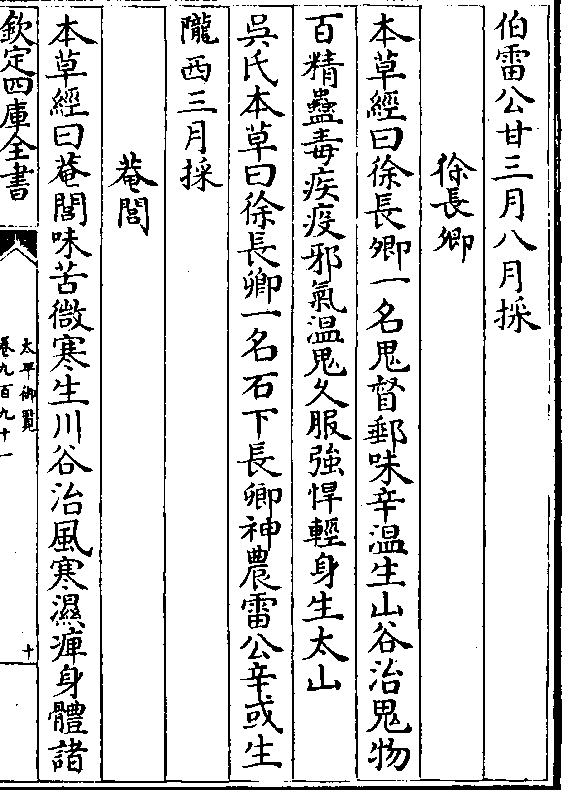 伯雷公甘三月八月採
徐長卿
本草經曰徐長卿一名鬼督郵味辛温生山谷治鬼物
百精蠱毒疾疫邪氣温鬼久服強悍輕身生太山
吳氏本草曰徐長卿一名石下長卿神農雷公辛或生
隴西三月採
菴䕡
本草經曰菴䕡味苦微寒生川谷治風寒濕痺身體諸
欽定四庫全書
太平御覧
卷九百九十一
十